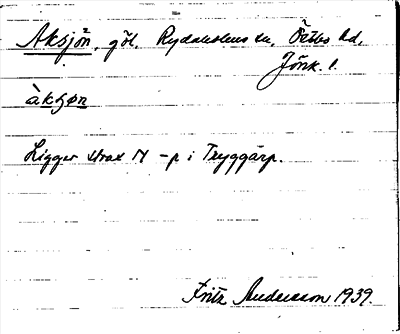 Aksjön, göl, Rydaholms sn, Östbo hd,
Jönk. l.
àkʂøn
Ligger strax N -p i Tryggarp.
Fritz Andersson 1939.